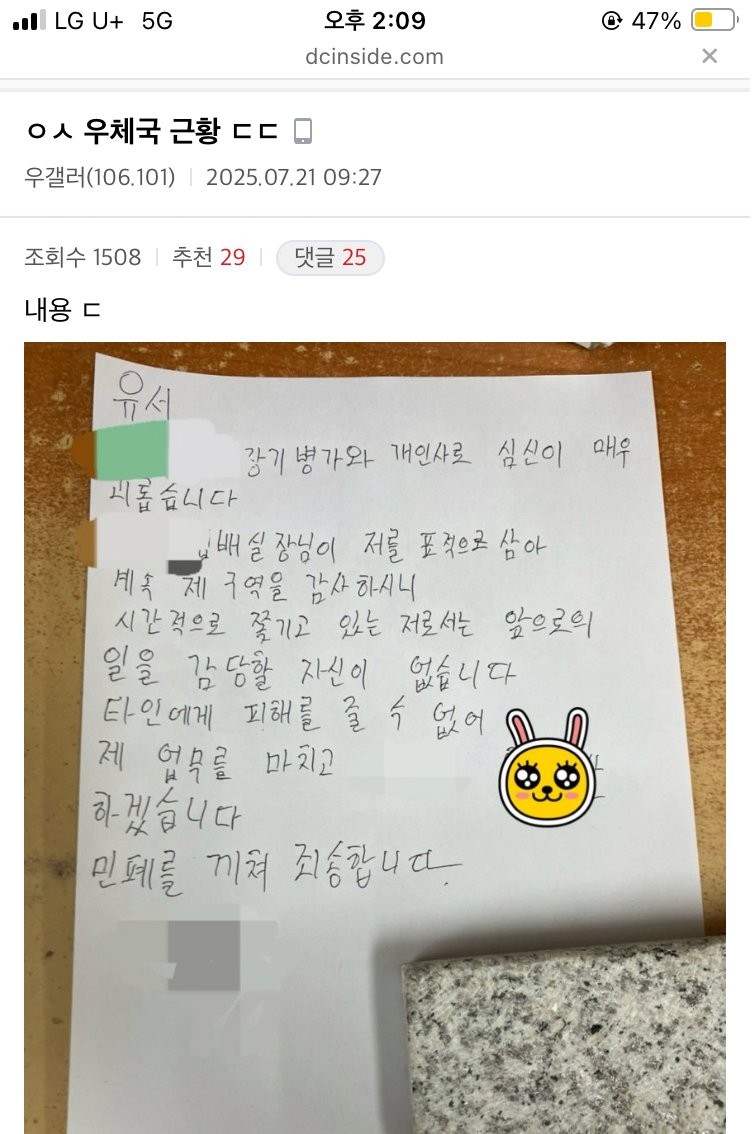 LG U+ 5G 오후 2:09 47%
dcinside.com
ㅇㅅ 우체국 근황 ㄷㄷ
우갤러(106.101) 2025.07.21 09:27
조회수 1508 추천 29 댓글 25
내용 ㄷ
유서
장기 병가와 개인사로 심신이 매우
괴롭습니다
배실장님이 저를 표적으로 삼아
계속 제 구역을 감사하시니
시간적으로 쫓기고 있는 저로서는 앞으로의
일을 감당할 자신이 없습니다
타인에게 피해를 줄 수 없어
제 업무를 마치고
하겠습니다
민폐를 끼쳐 죄송합니다.